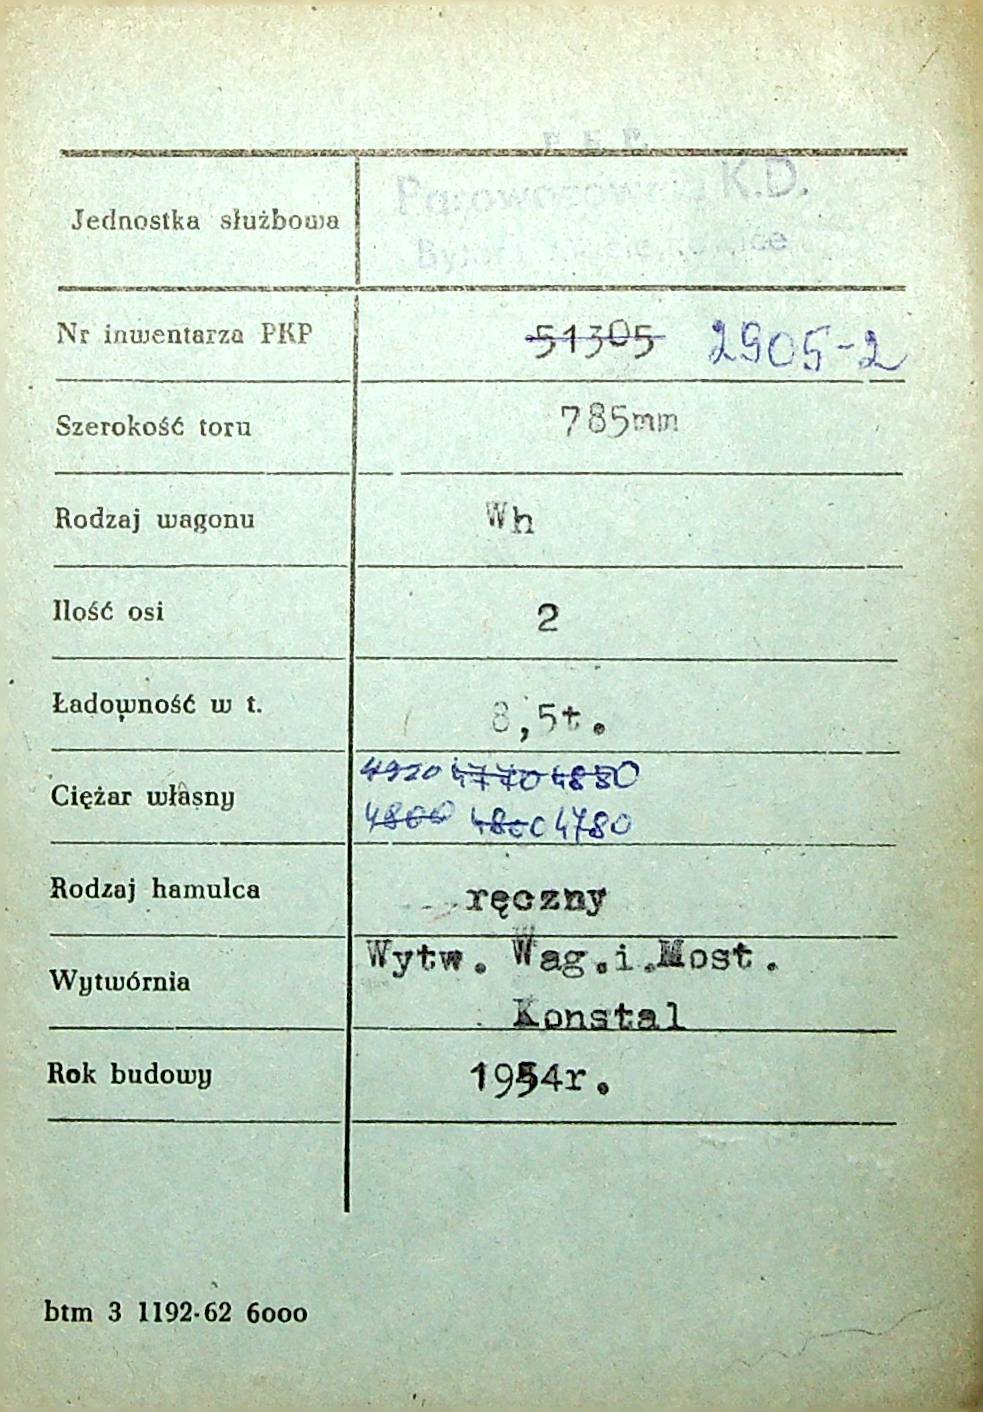 P. K. P.
Parowozownia K.D.
Jednostka służbowa
Nr inwentarza PKP 51305 2905-2
Szerokość toru 785mm
Rodzaj wagonu Wh
Ilość osi 2
Ładowność w t. 8,5t.
4920 4770 4850
Ciężar własny
4800 4800 4780
Rodzaj hamulca ręczny
Wytw. Wag.i.Most.
Wytwórnia
Konstal
Rok budowy 1954r.
btm 3 1192-62 6000